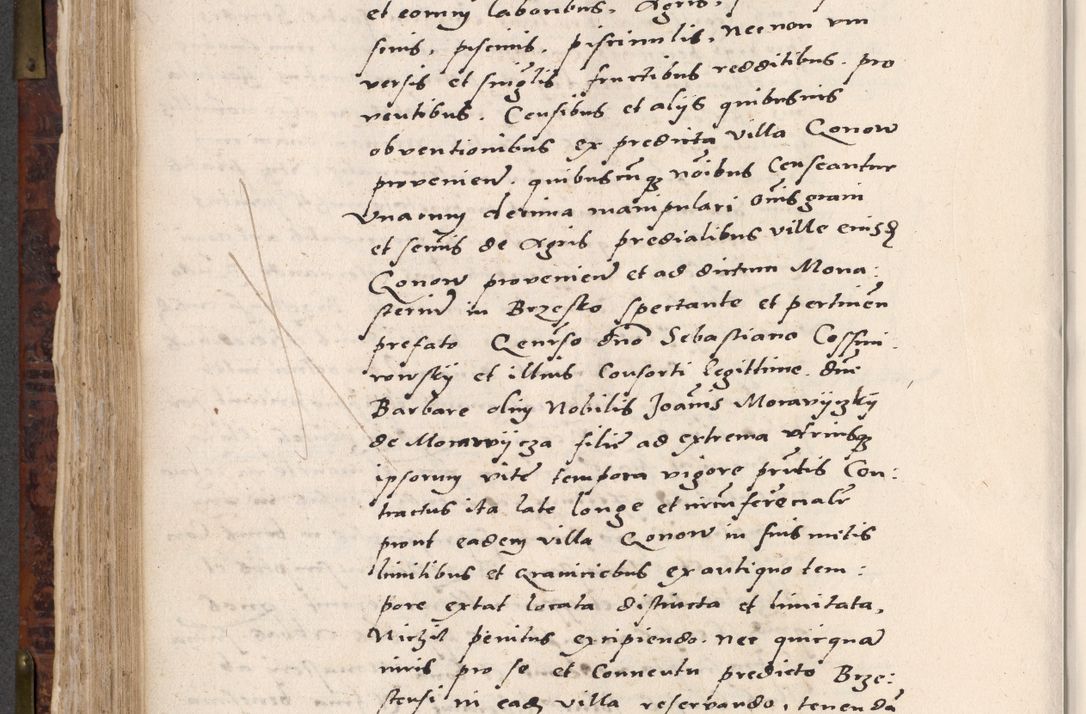 et eorum laboribus, Agris,
sinis, piscinis, piscinulis, Necnon vni
versis et singulis fructibus redditibus, pro
ventibus, Censibus et alijs quibusuis
obventionibus ex predicta villa Qonow
provenien̄. quibuscunq̄ noı̄bus Censeantur
Vnacum decima manipulari oı̄s grani
et semīs de Agris predialibus ville eiusd̄
Qonow provenien̄ et ad dictum Mona:
steriū in Brzesko spectante et pertinēn
prefato Gen̄rso dn̄o Sebastiano Cossmi:
rowskij et illius Consorti legittime dn̄e
Barbare olim Nobilis Joānis Morawijczkij
de Morawijcza filie ad extrema vtriusq̄
ipsorum vite tempora vigore pn̄tis Con:
tractus ita late longe et circūferēcialr̄
prout eadem villa Qonow in suis metis
limitibus et graniciebus ex antiquo tem:
pore extat locata distincta et limitata,
Nichil penitus excipiendo. nec quicquā
iuris pro se et Conuentu predicto Brze:
stensi in ead̄ villa reservando, tenendā